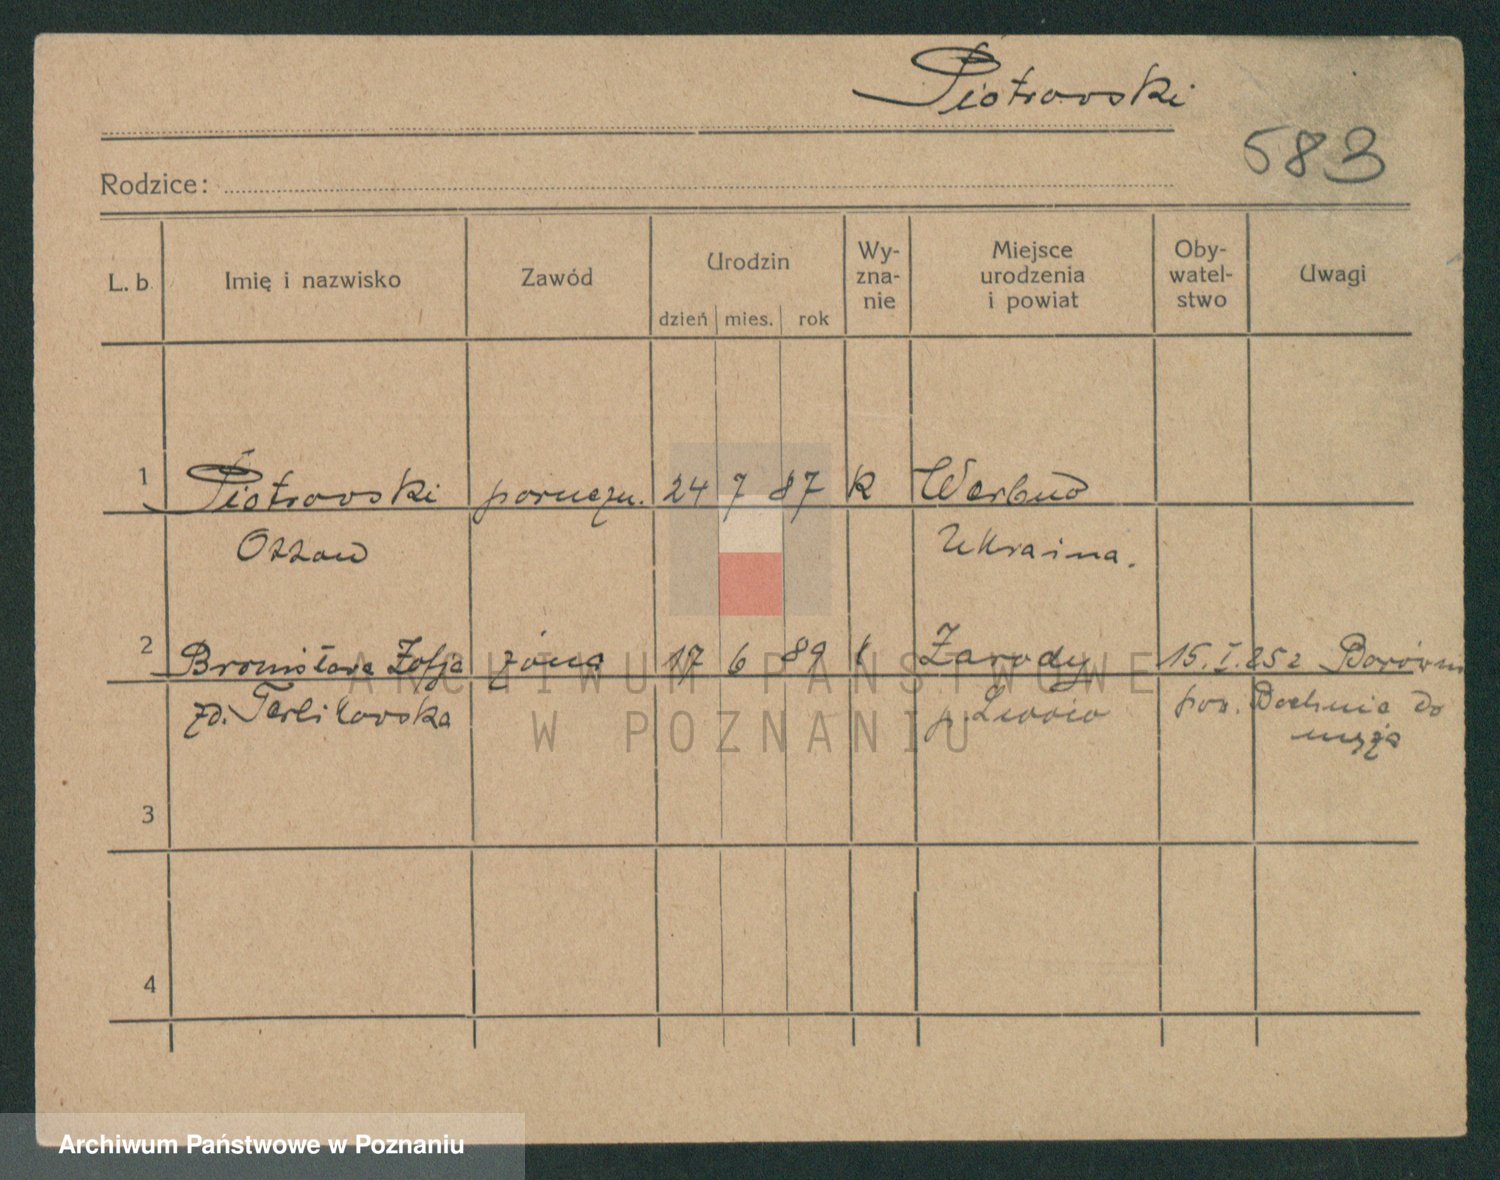 Piotrowski
583
Rodzice:
L. b. Imię i nazwisko Zawód Urodzin dzień mies. rok Wy- zna- nie Miejsce urodzenia i powiat Oby- watel- stwo Uwagi
1 Piotrowski poruczn. 24 7 87 k
Ukraina.
2 Bronisława Zofja żona 17 6 89 k Zarody 15. I. 25 z
zd. Terlikowska p. Lwów pow. Bochnia do
męża
3
4
ARCHIWUM PAŃSTWOWE
W POZNANIU
Archiwum Państwowe w Poznaniu